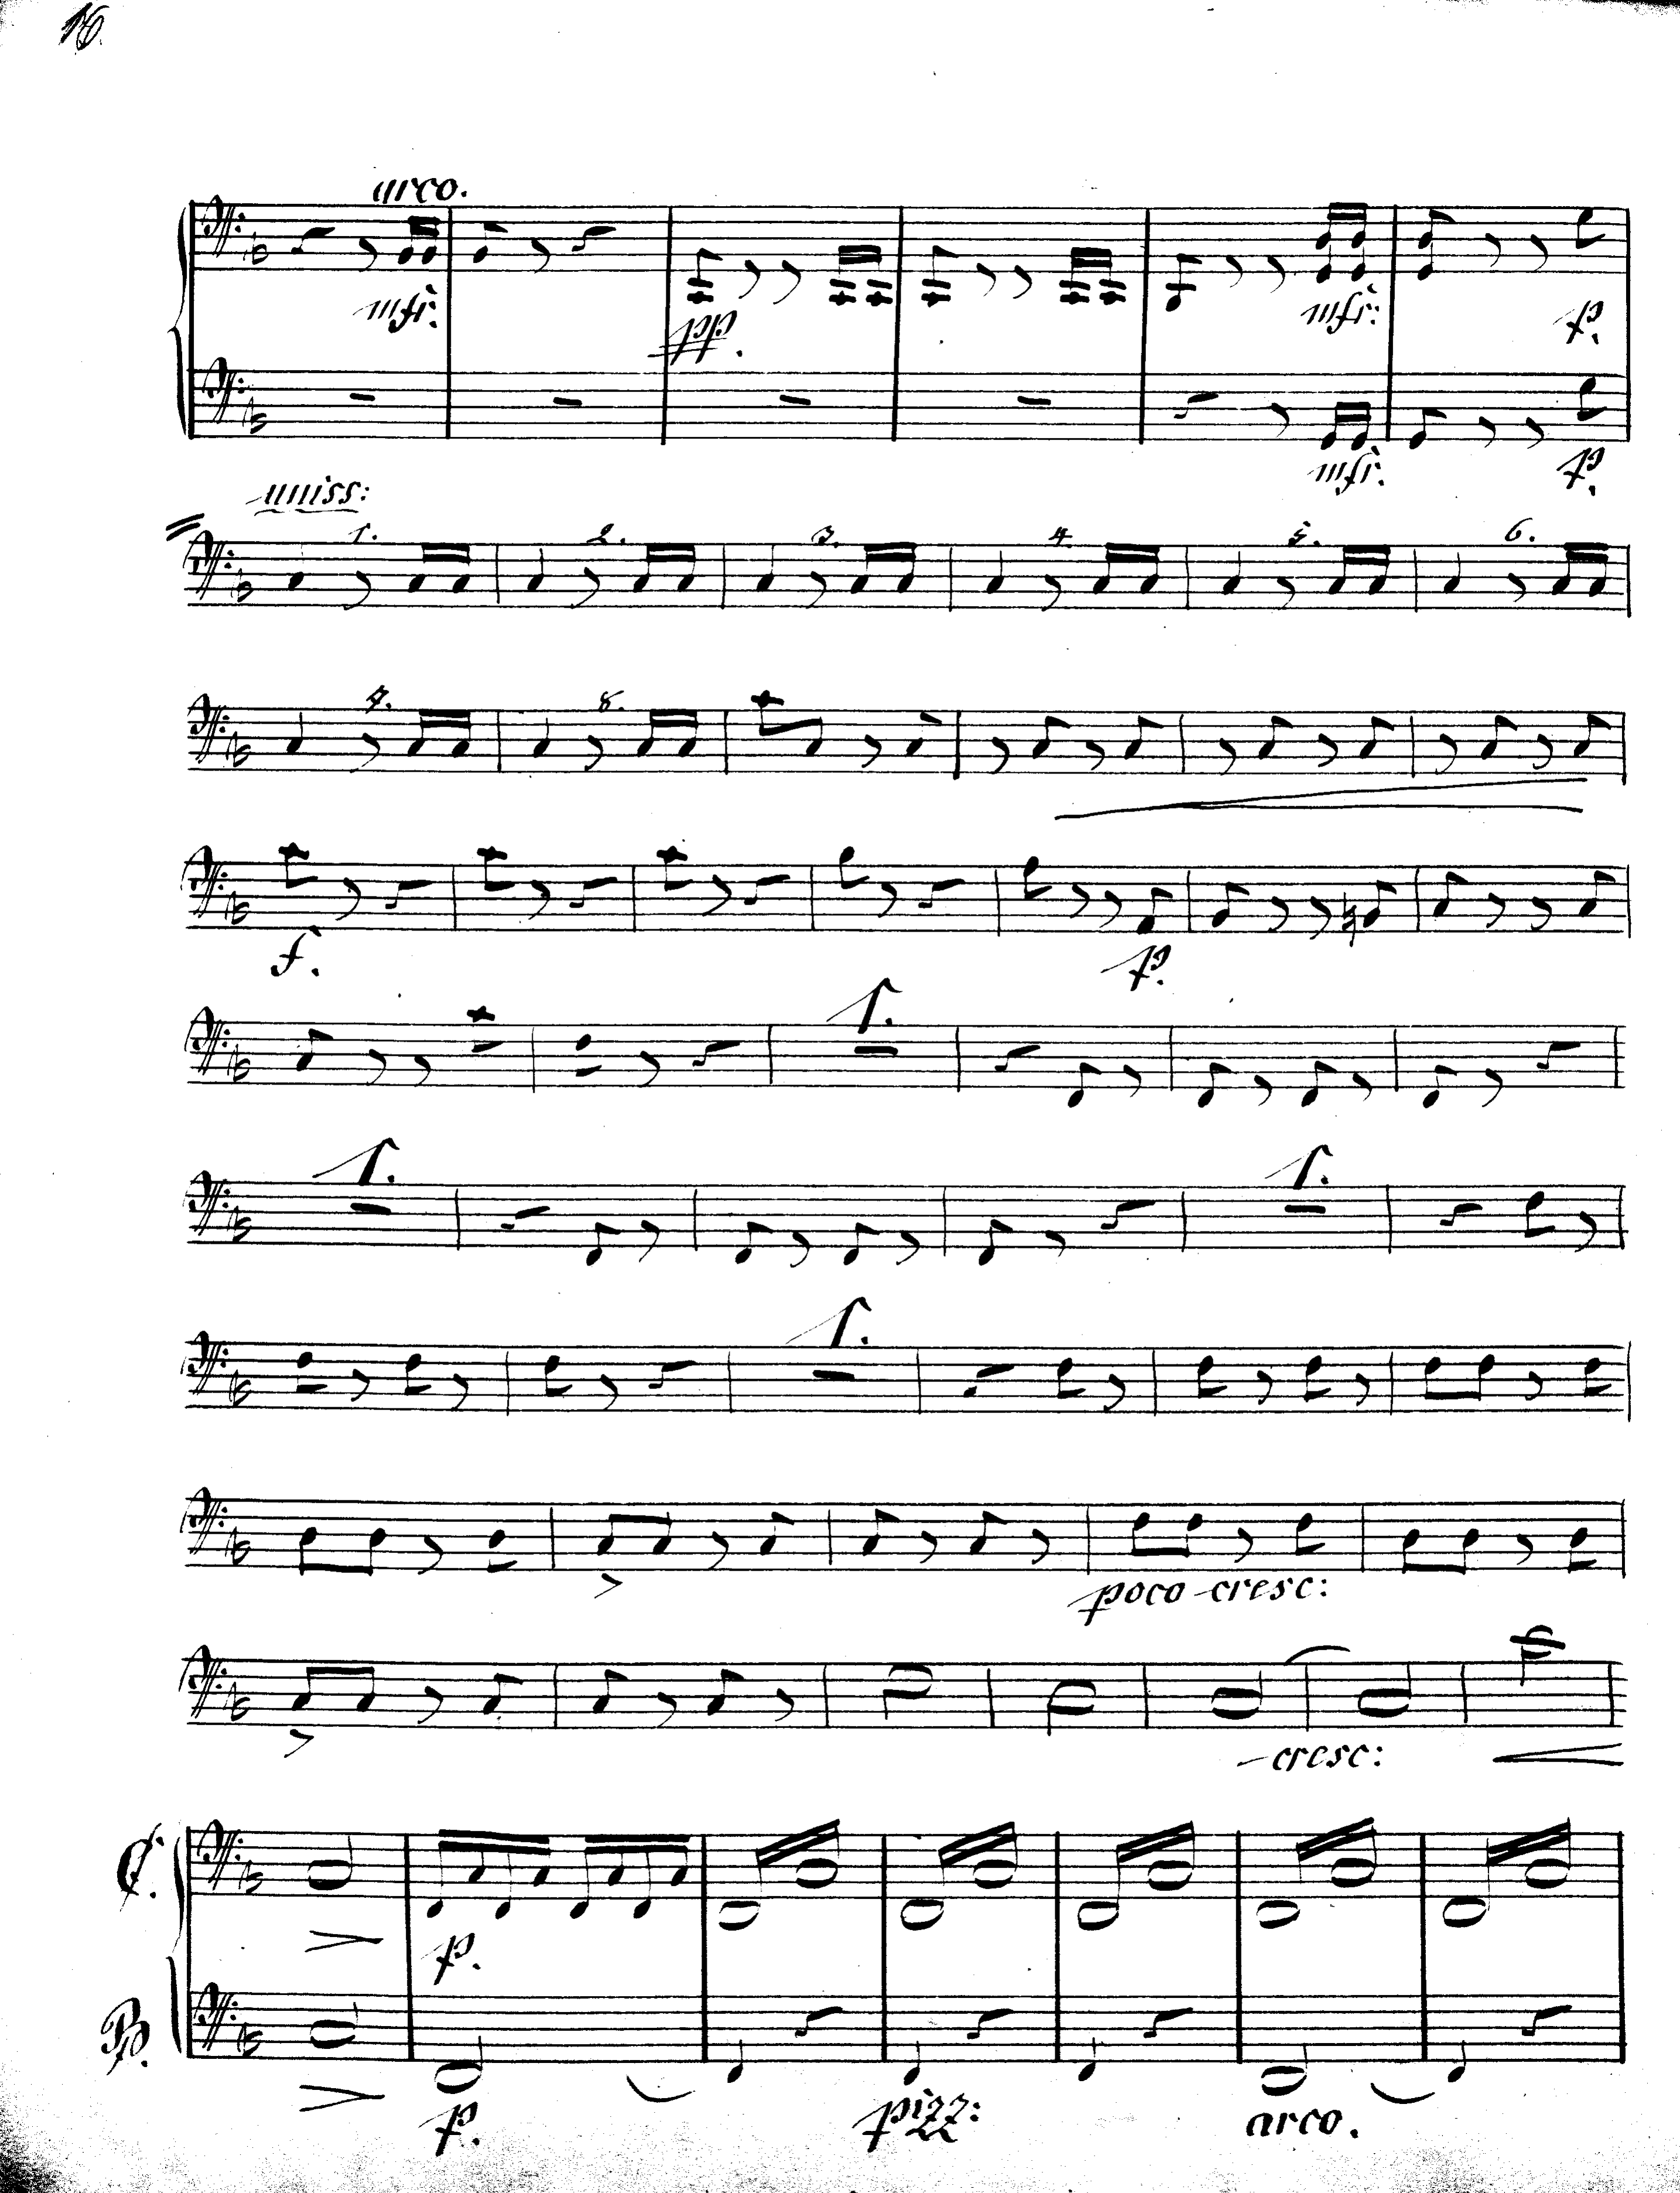 16.
arco.
mfr:
pp.
mfr:
p.
mfr.
p.
uniss:
1. 2. 3. 4. 5. 6.
7. 8.
f.
p.
1.
1. 1.
1.
poco cresc:
cresc:
C.
p.
B.
p. pizz: arco.